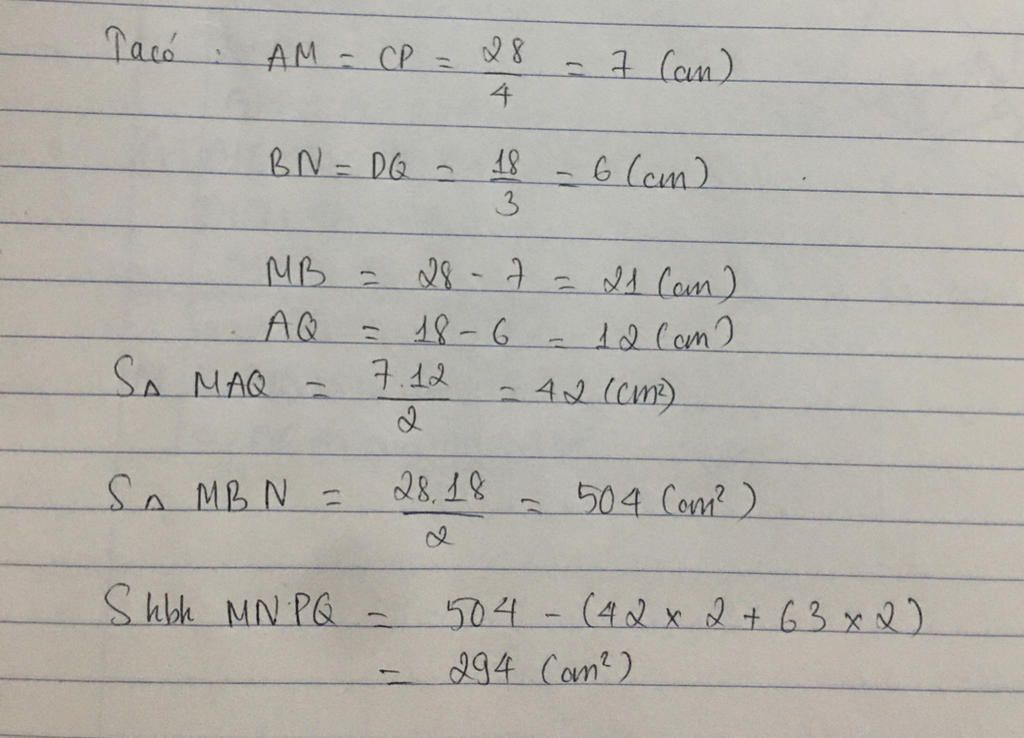 Ta có : AM = CP = 28/4 = 7 (cm)
BN = DQ = 18/3 = 6 (cm)
MB = 28 - 7 = 21 (cm)
AQ = 18 - 6 = 12 (cm)
S△ MAQ = 7.12/2 = 42 (cm²)
S△ MBN = 28.18/2 = 504 (cm²)
S hbh MNPQ = 504 - (42 x 2 + 63 x 2)
= 294 (cm²)